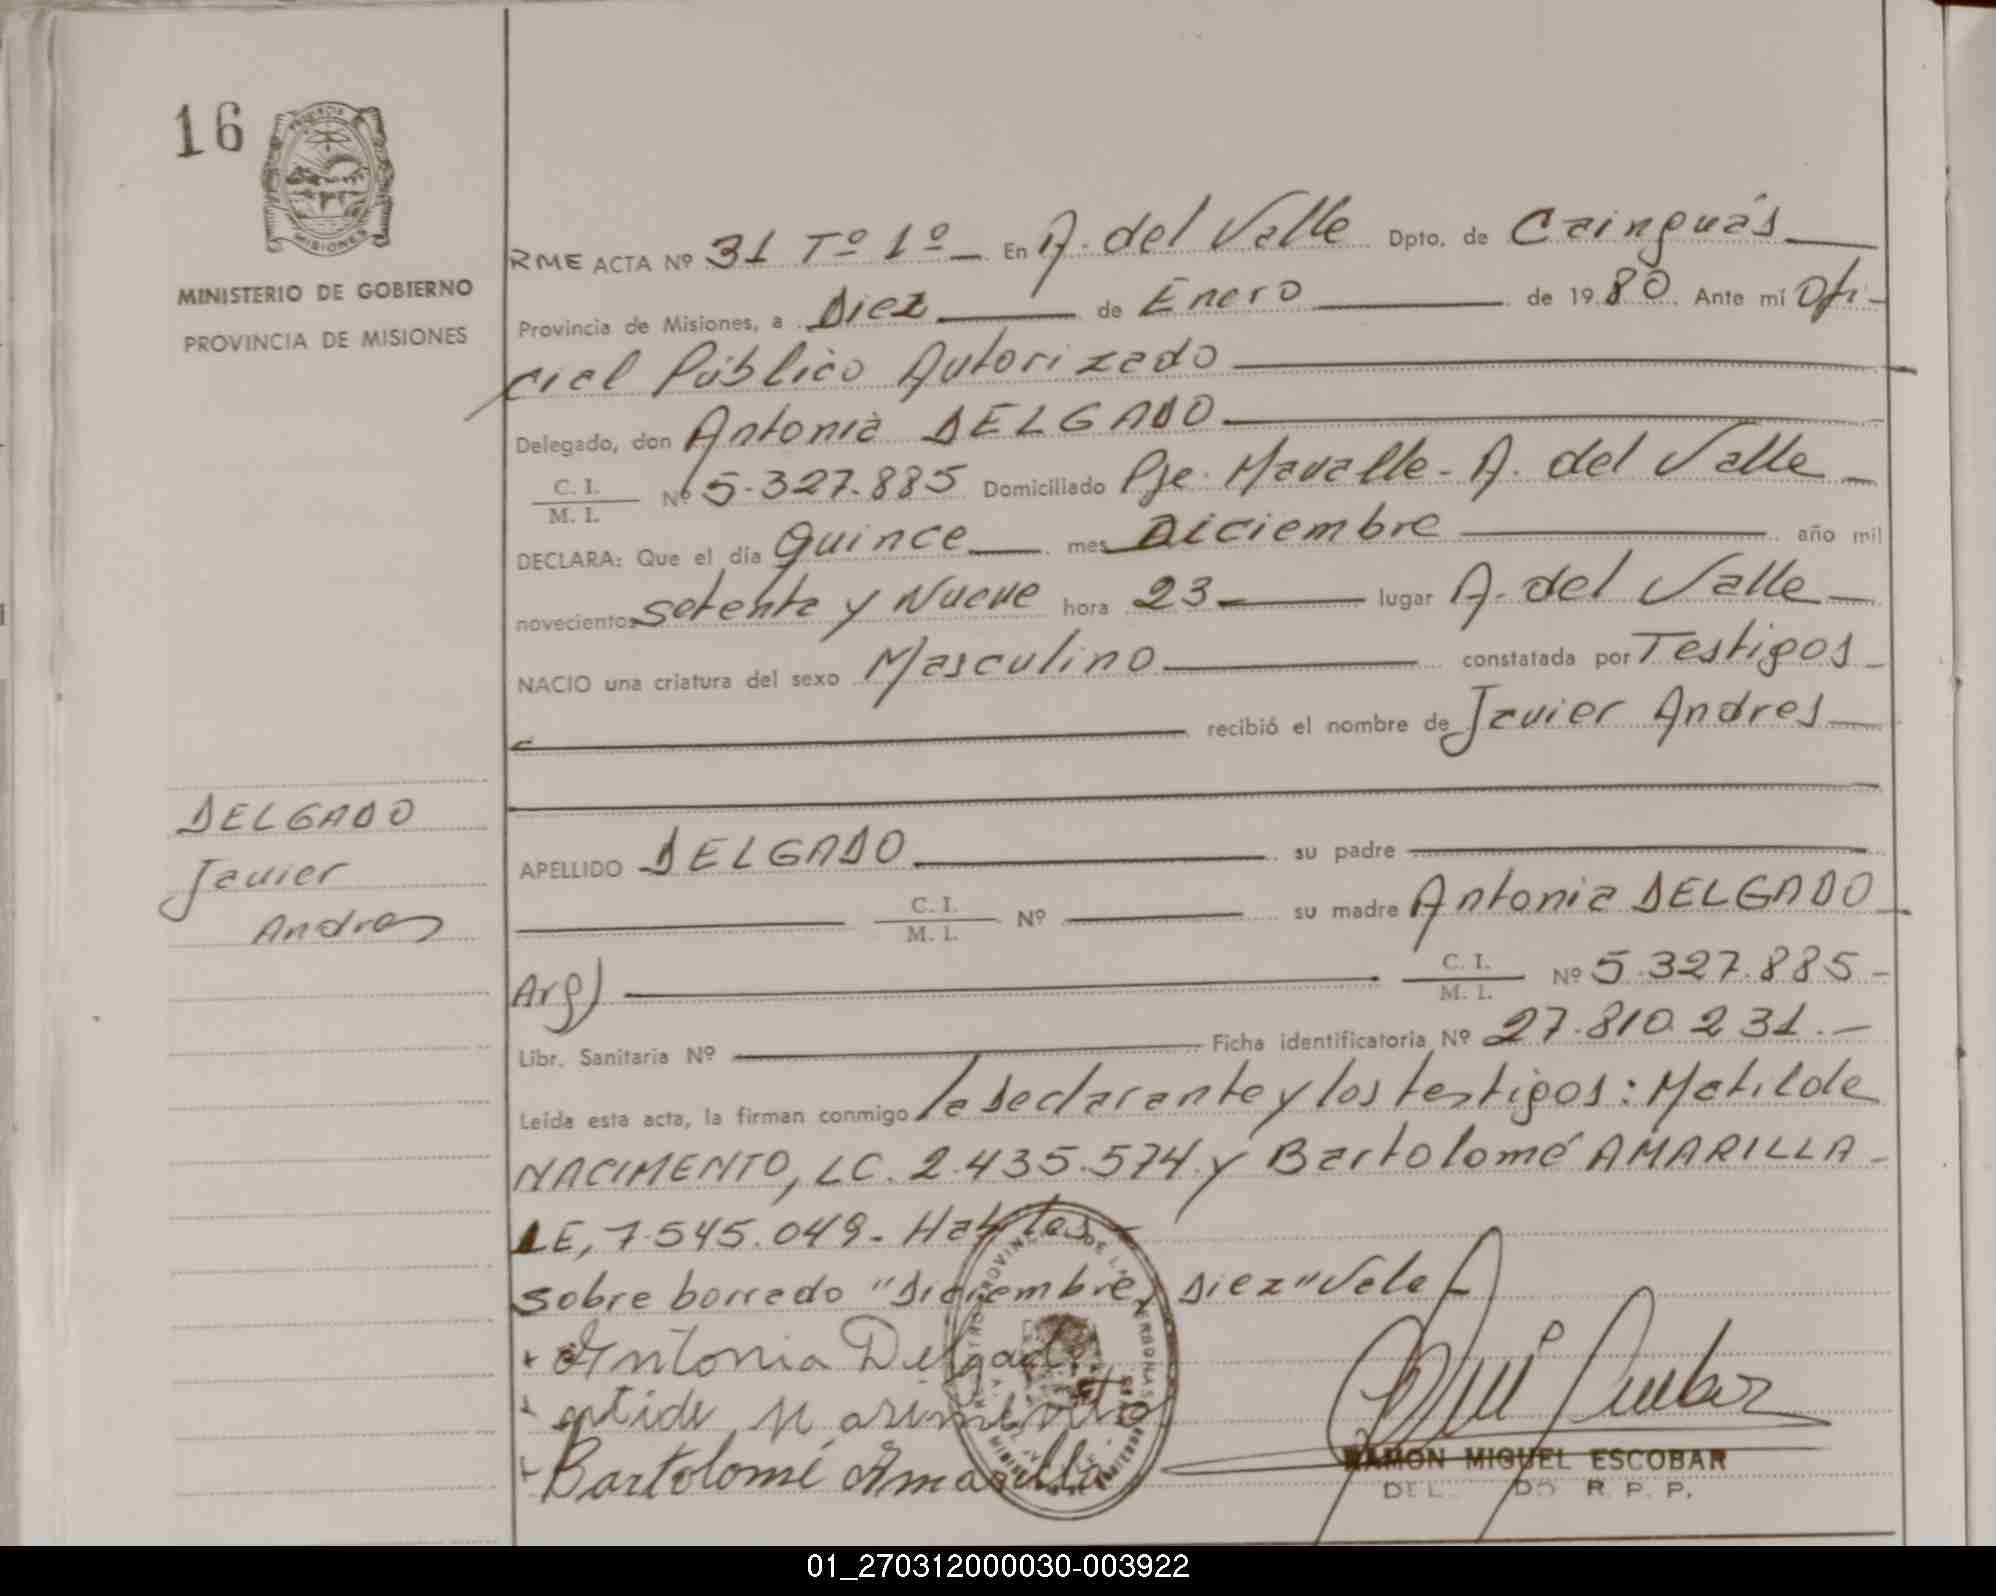 16
MINISTERIO DE GOBIERNO
PROVINCIA DE MISIONES
RME ACTA Nº 31 Tº 1º En A. del Valle Dpto. de Cainguás
Provincia de Misiones, a Diez de Enero de 1980 Ante mí Ofi-
cial Público Autorizado
Delegado, don Antonia DELGADO
C. I.
M. I. Nº 5.327.885 Domiciliado Pje. Mavalle - A. del Valle
DECLARA: Que el día Quince mes Diciembre año mil
novecientos setenta y Nueve hora 23 lugar A. del Valle
NACIO una criatura del sexo Masculino constatada por Testigos
recibió el nombre de Javier Andres
DELGADO
Javier
Andres
APELLIDO DELGADO su padre
C. I.
M. I. Nº su madre Antonia DELGADO
Arg)
C. I.
M. I. Nº 5.327.885
Libr. Sanitaria Nº Ficha identificatoria Nº 27.810.231.-
Leída esta acta, la firman conmigo la declarante y los testigos: Matilde
NACIMENTO, LC. 2.435.574 y Bartolomé AMARILLA
LE, 7.545.049.
sobre borrado "Diciembre, Diez" Vale
Antonia Delgado
Bartolomé Amarilla
RAMON MIGUEL ESCOBAR
R. P. P.
01_270312000030-003922